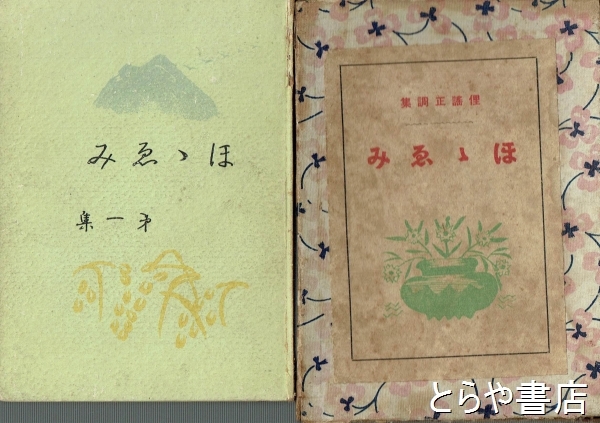 ほゝゑみ
第一集
俚謡正調集
ほゝゑみ
とらや書店